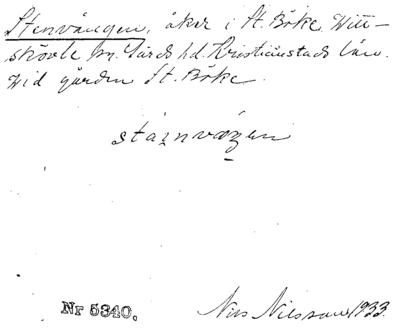 Stenvången, åker i St. Böke, Witt-
skövle sn. Gärds hd. Kristianstads län.
Wid gården St. Böke.
stainvæŋen
Nr 5340.
Nils Nilsson 1933.